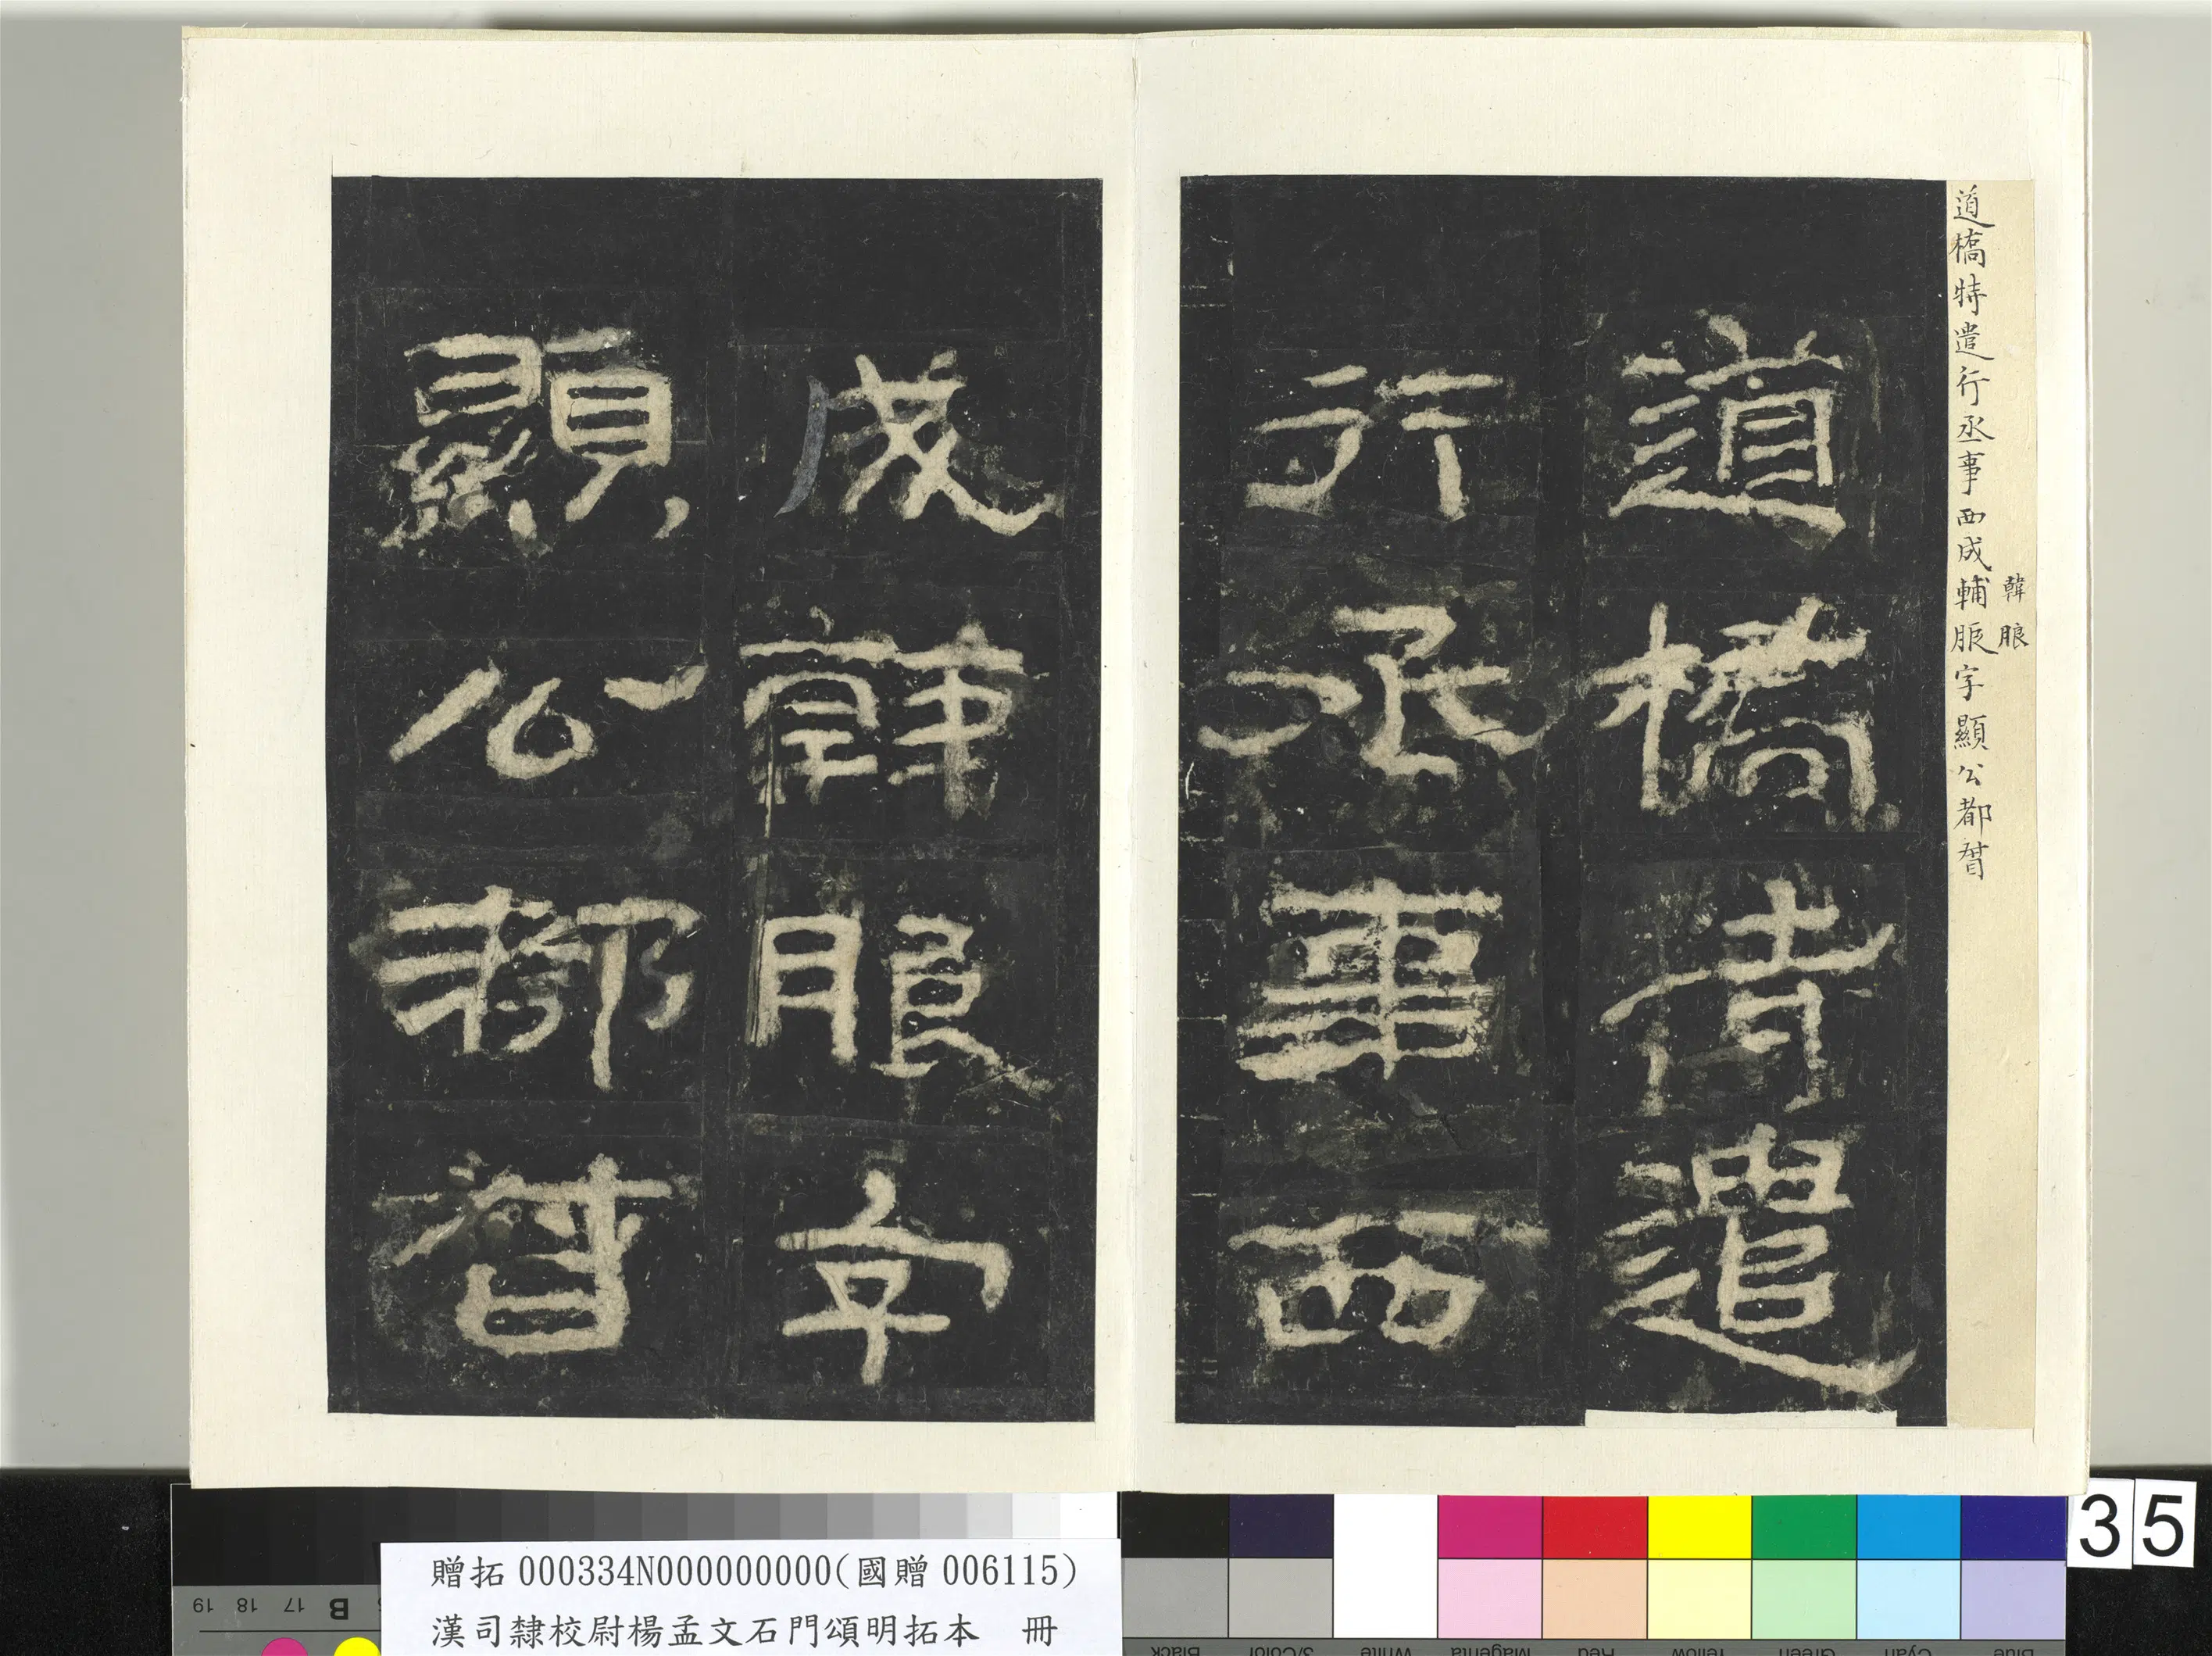 韓朖
道橋特遣行丞事西成輔脤字顯公都督
道橋特遣
行丞事西
成韓朖字
顯公都督
35
贈拓000334N000000000(國贈006115)
漢司隸校尉楊孟文石門頌明拓本 冊
19 18 17 B
Black 3/Color White Magenta Red Yellow Green Cyan Blue